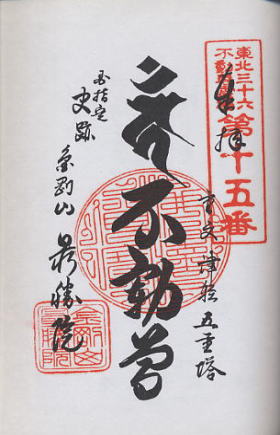 東北三十六
不動尊
第十五番
奉拝
重文津軽五重塔
不動尊
国指定
史跡
金剛山
最勝院
金剛山
最勝院